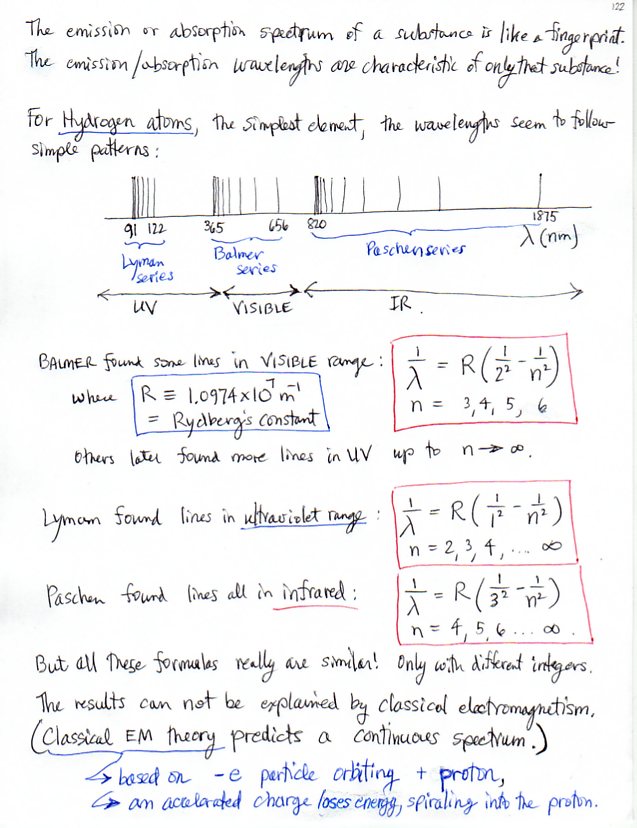 122
The emission or absorption spectrum of a substance is like a fingerprint.
The emission/absorption wavelengths are characteristic of only that substance!
For Hydrogen atoms, the simplest element, the wavelengths seem to follow
simple patterns:
91 122 365 656 820 1875
λ (nm)
Lyman series
Balmer series
Paschen series
UV VISIBLE IR.
BALMER found some lines in VISIBLE range: 1/λ = R(1/2² - 1/n²)
where R ≡ 1.0974×10⁷ m⁻¹ n = 3,4,5,6
= Rydberg's constant
Others later found more lines in UV up to n→∞.
Lyman found lines in ultraviolet range: 1/λ = R(1/1² - 1/n²)
n = 2,3,4,.... ∞
Paschen found lines all in infrared: 1/λ = R(1/3² - 1/n²)
n = 4,5,6 .... ∞.
But all these formulas really are similar! Only with different integers.
The results can not be explained by classical electromagnetism.
(Classical EM theory predicts a continuous spectrum.)
↳ based on -e particle orbiting + proton,
↳ an accelerated charge loses energy, spiraling into the proton.